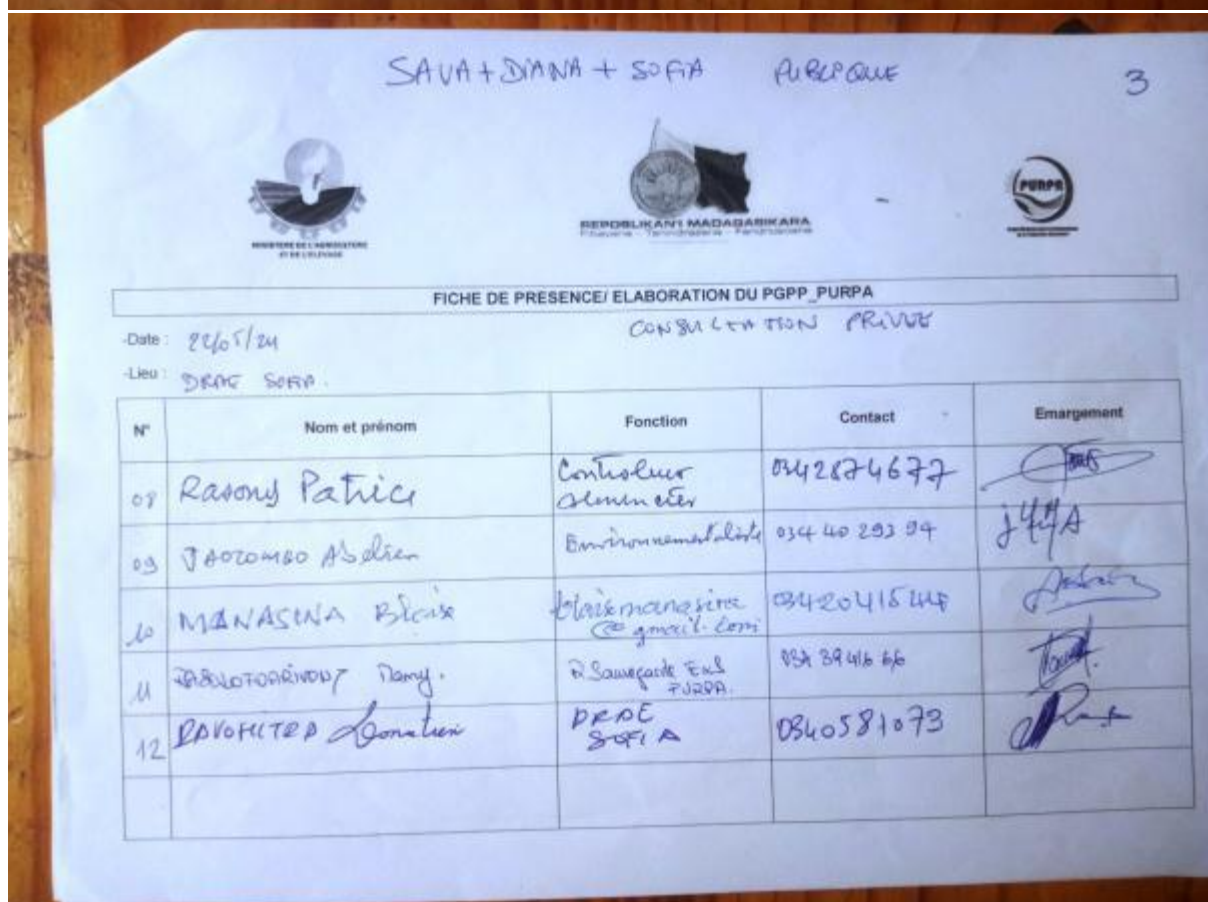 SAVA + DIANA + SOFIA PUBLIQUE 3
MINISTERE DE L'AGRICULTURE
ET DE L'ELEVAGE
REPOBLIKAN'I MADAGASIKARA
Fitiavana - Tanindrazana - Fandrosoana
PURPA
FICHE DE PRESENCE/ ELABORATION DU PGPP_PURPA
CONSULTATION PRIVEE
-Date : 22/05/24
-Lieu : DRAE SOFIA.
N° Nom et prénom Fonction Contact Emargement
08 Rasony Patrice Controleur 0342874677
09 JAOZOMBO Abelien Environnementaliste 034 40 293 94
10 MANASINA Blaise blaisemanasina
@ gmail.com
11 R Sauvegarde E&S
PURPA.
12 RAVOHITRA Donatien DRAE
SOFIA 0340581073